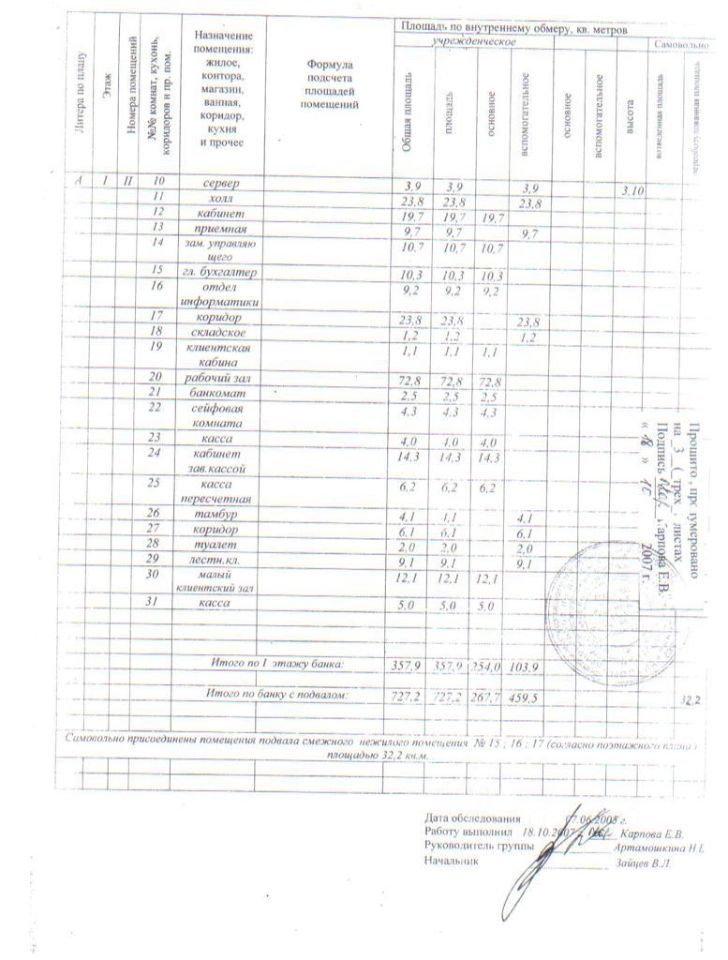 Литера по плану
Этаж
Номера помещений
№№ комнат, кухонь, коридоров и пр. пом.
Назначение помещения: жилое, контора, магазин, ванная, коридор, кухня и прочее
Формула подсчета площадей помещений
Площадь по внутреннему обмеру, кв. метров
учрежденческое
Самовольно
Общая площадь
площадь
основное
вспомогательное
основное
вспомогательное
высота
возведенная площадь
переоборудованная площадь
А I II 10 сервер 3,9 3,9 3,9 3,10
11 холл 23,8 23,8 23,8
12 кабинет 19,7 19,7 19,7
13 приемная 9,7 9,7 9,7
14 зам. управляю 10,7 10,7 10,7
щего
15 гл. бухгалтер 10,3 10,3 10,3
16 отдел 9,2 9,2 9,2
информатики
17 коридор 23,8 23,8 23,8
18 складское 1,2 1,2 1,2
19 клиентская 1,1 1,1 1,1
кабина
20 рабочий зал 72,8 72,8 72,8
21 банкомат 2,5 2,5 2,5
22 сейфовая 4,3 4,3 4,3
комната
23 касса 4,0 4,0 4,0
24 кабинет 14,3 14,3 14,3
зав.кассой
25 касса 6,2 6,2 6,2
пересчетная
26 тамбур 4,1 4,1 4,1
27 коридор 6,1 6,1 6,1
28 туалет 2,0 2,0 2,0
29 лестн.кл. 9,1 9,1 9,1
30 малый 12,1 12,1 12,1
клиентский зал
31 касса 5,0 5,0 5,0
Итого по I этажу банка: 357,9 357,9 254,0 103,9
Итого по банку с подвалом: 727,2 727,2 267,7 459,5 32,2
Самовольно присоединены помещения подвала смежного нежилого помещения № 15 ; 16 ; 17 (согласно поэтажного плана)
площадью 32,2 кв.м.
Прошито, пронумеровано
на 3 ( трех ) листах
Подпись Карпова Е.В.
« 18 » 10 2007 г.
Дата обследования 07.06.2005 г.
Работу выполнил 18.10.2007 Карпова Е.В.
Руководитель группы Артамошкина Н.Е
Начальник Зайцев В.Л.